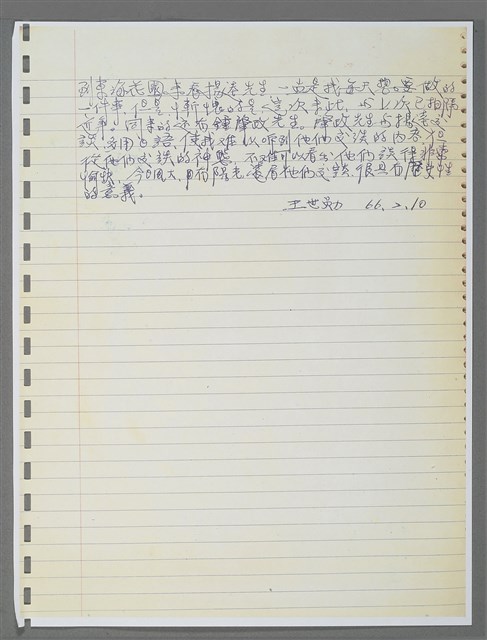 到東海花園來看楊逵先生，一直是我每天想要做的
一件事。但是慚愧的是，這次來此，與上次已相隔
近年。同來的還有鍾肇政先生。肇政先生與楊逵交
談，多用日語，使我難以聽到他們交談的內容，但
從他們交談的神態，不難可以看出他們談得非常
愉快，今日風大，且有陽光，還看他們交談，很具有歷史性
的意義。
王世勛 66.2.10